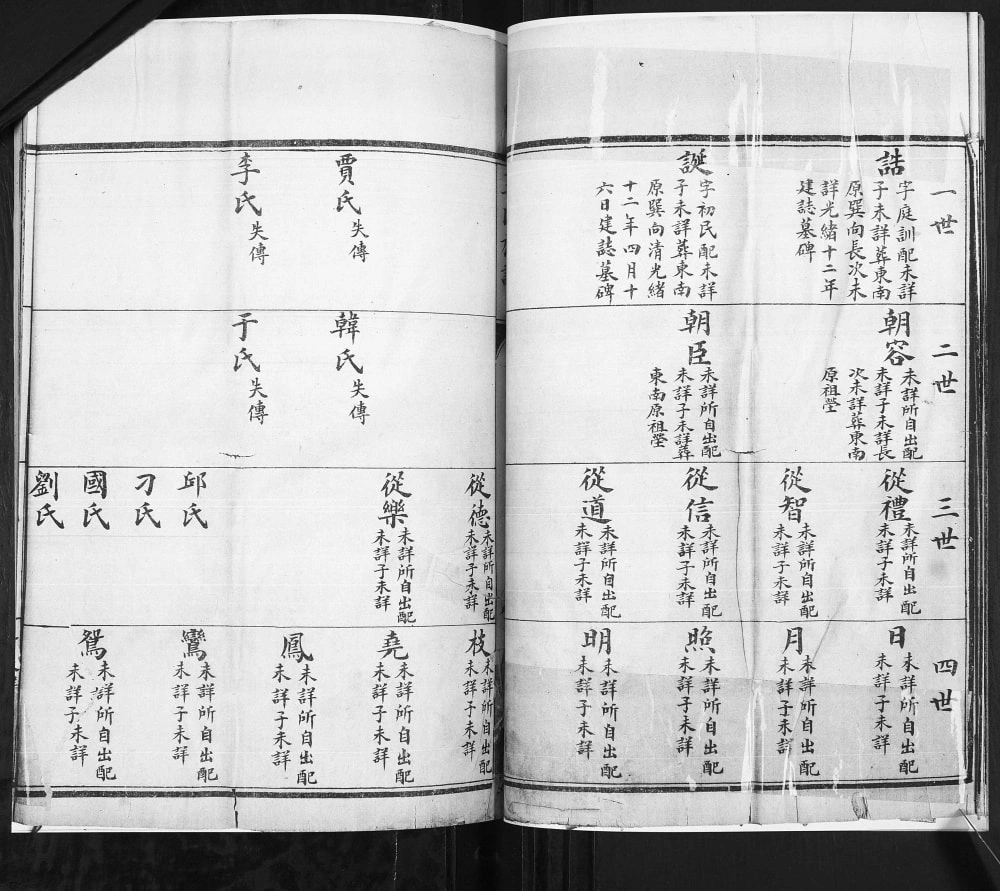 一世
誥
字庭訓配未詳
子未詳葬東南
原巽向長次未
詳光緒十二年
建誌墓碑
誕
字初民配未詳
子未詳葬東南
原巽向清光緒
十二年四月十
六日建誌墓碑
賈氏失傳
李氏失傳
二世
朝容
未詳所自出配
未詳子未詳長
次未詳葬東南
原祖塋
朝臣
未詳所自出配
未詳子未詳葬
東南原祖塋
韓氏失傳
于氏失傳
三世
從禮
未詳所自出配
未詳子未詳
從智
未詳所自出配
未詳子未詳
從信
未詳所自出配
未詳子未詳
從道
未詳所自出配
未詳子未詳
從德
未詳所自出配
未詳子未詳
從樂
未詳所自出配
未詳子未詳
邱氏
刁氏
國氏
劉氏
四世
日
未詳所自出配
未詳子未詳
月
未詳所自出配
未詳子未詳
照
未詳所自出配
未詳子未詳
明
未詳所自出配
未詳子未詳
枝
未詳所自出配
未詳子未詳
堯
未詳所自出配
未詳子未詳
鳳
未詳所自出配
未詳子未詳
鸞
未詳所自出配
未詳子未詳
鴛
未詳所自出配
未詳子未詳